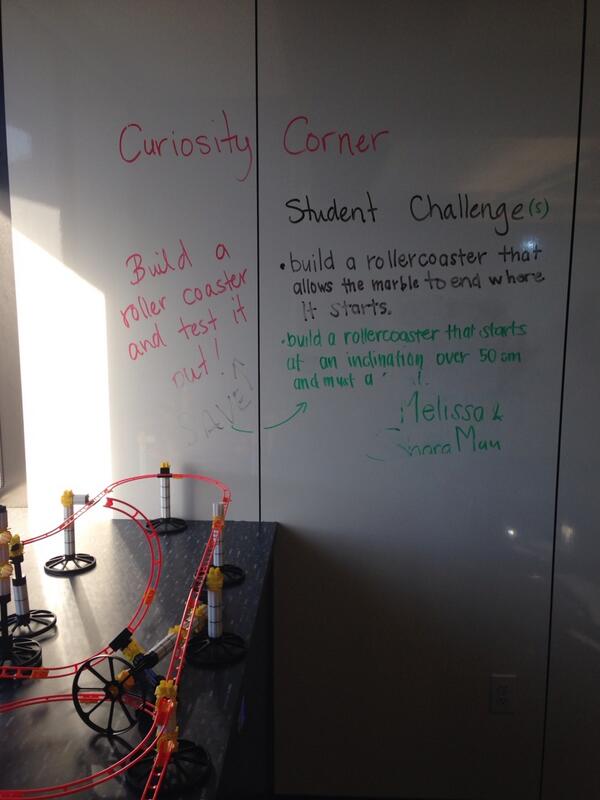 Curiosity Corner
Build a
roller coaster
and test it
out!
SAVE
Student Challenge(s)
• build a rollercoaster that
allows the marble to end where
it starts.
• build a rollercoaster that starts
at an inclination over 50 cm
and must a
Melissa &